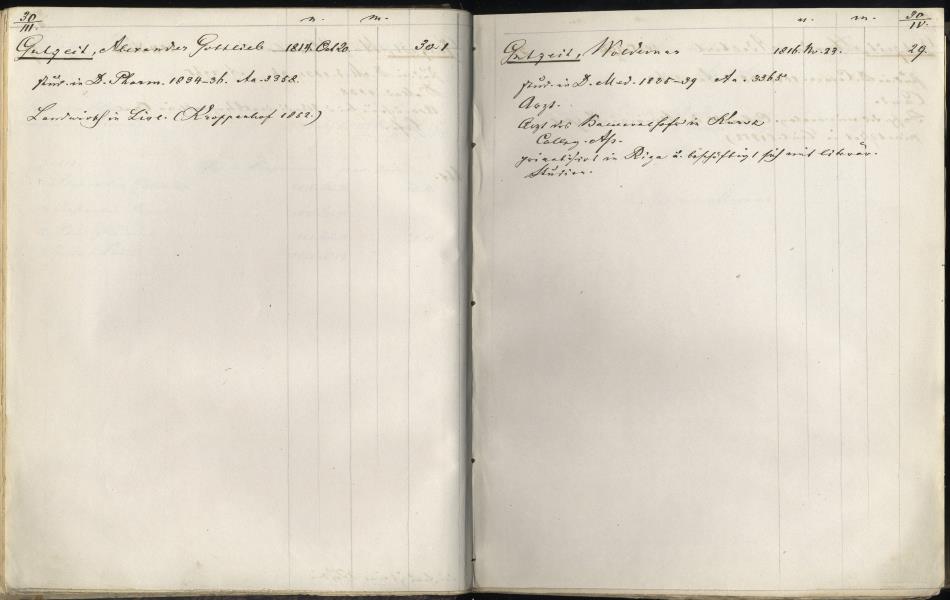 30
III.
n. m.
Gutzeit, Alexander Gottlieb 1814. Oct 20. 30.1
stud. in D. Pharm. 1834-36. Aa. 3358.
Landwirth in Livl. (Kroppenhof 1852.)
n. m. 30
IV.
Gutzeit, Woldemar 1816. Nv. 23. 29.
stud. in D. Med. 1835-39 Aa. 3365
Arzt.
Arzt des in Kursk
Colleg. Ass.
privatisirt in Riga u. beschäftigt sich mit literär.
Studien.